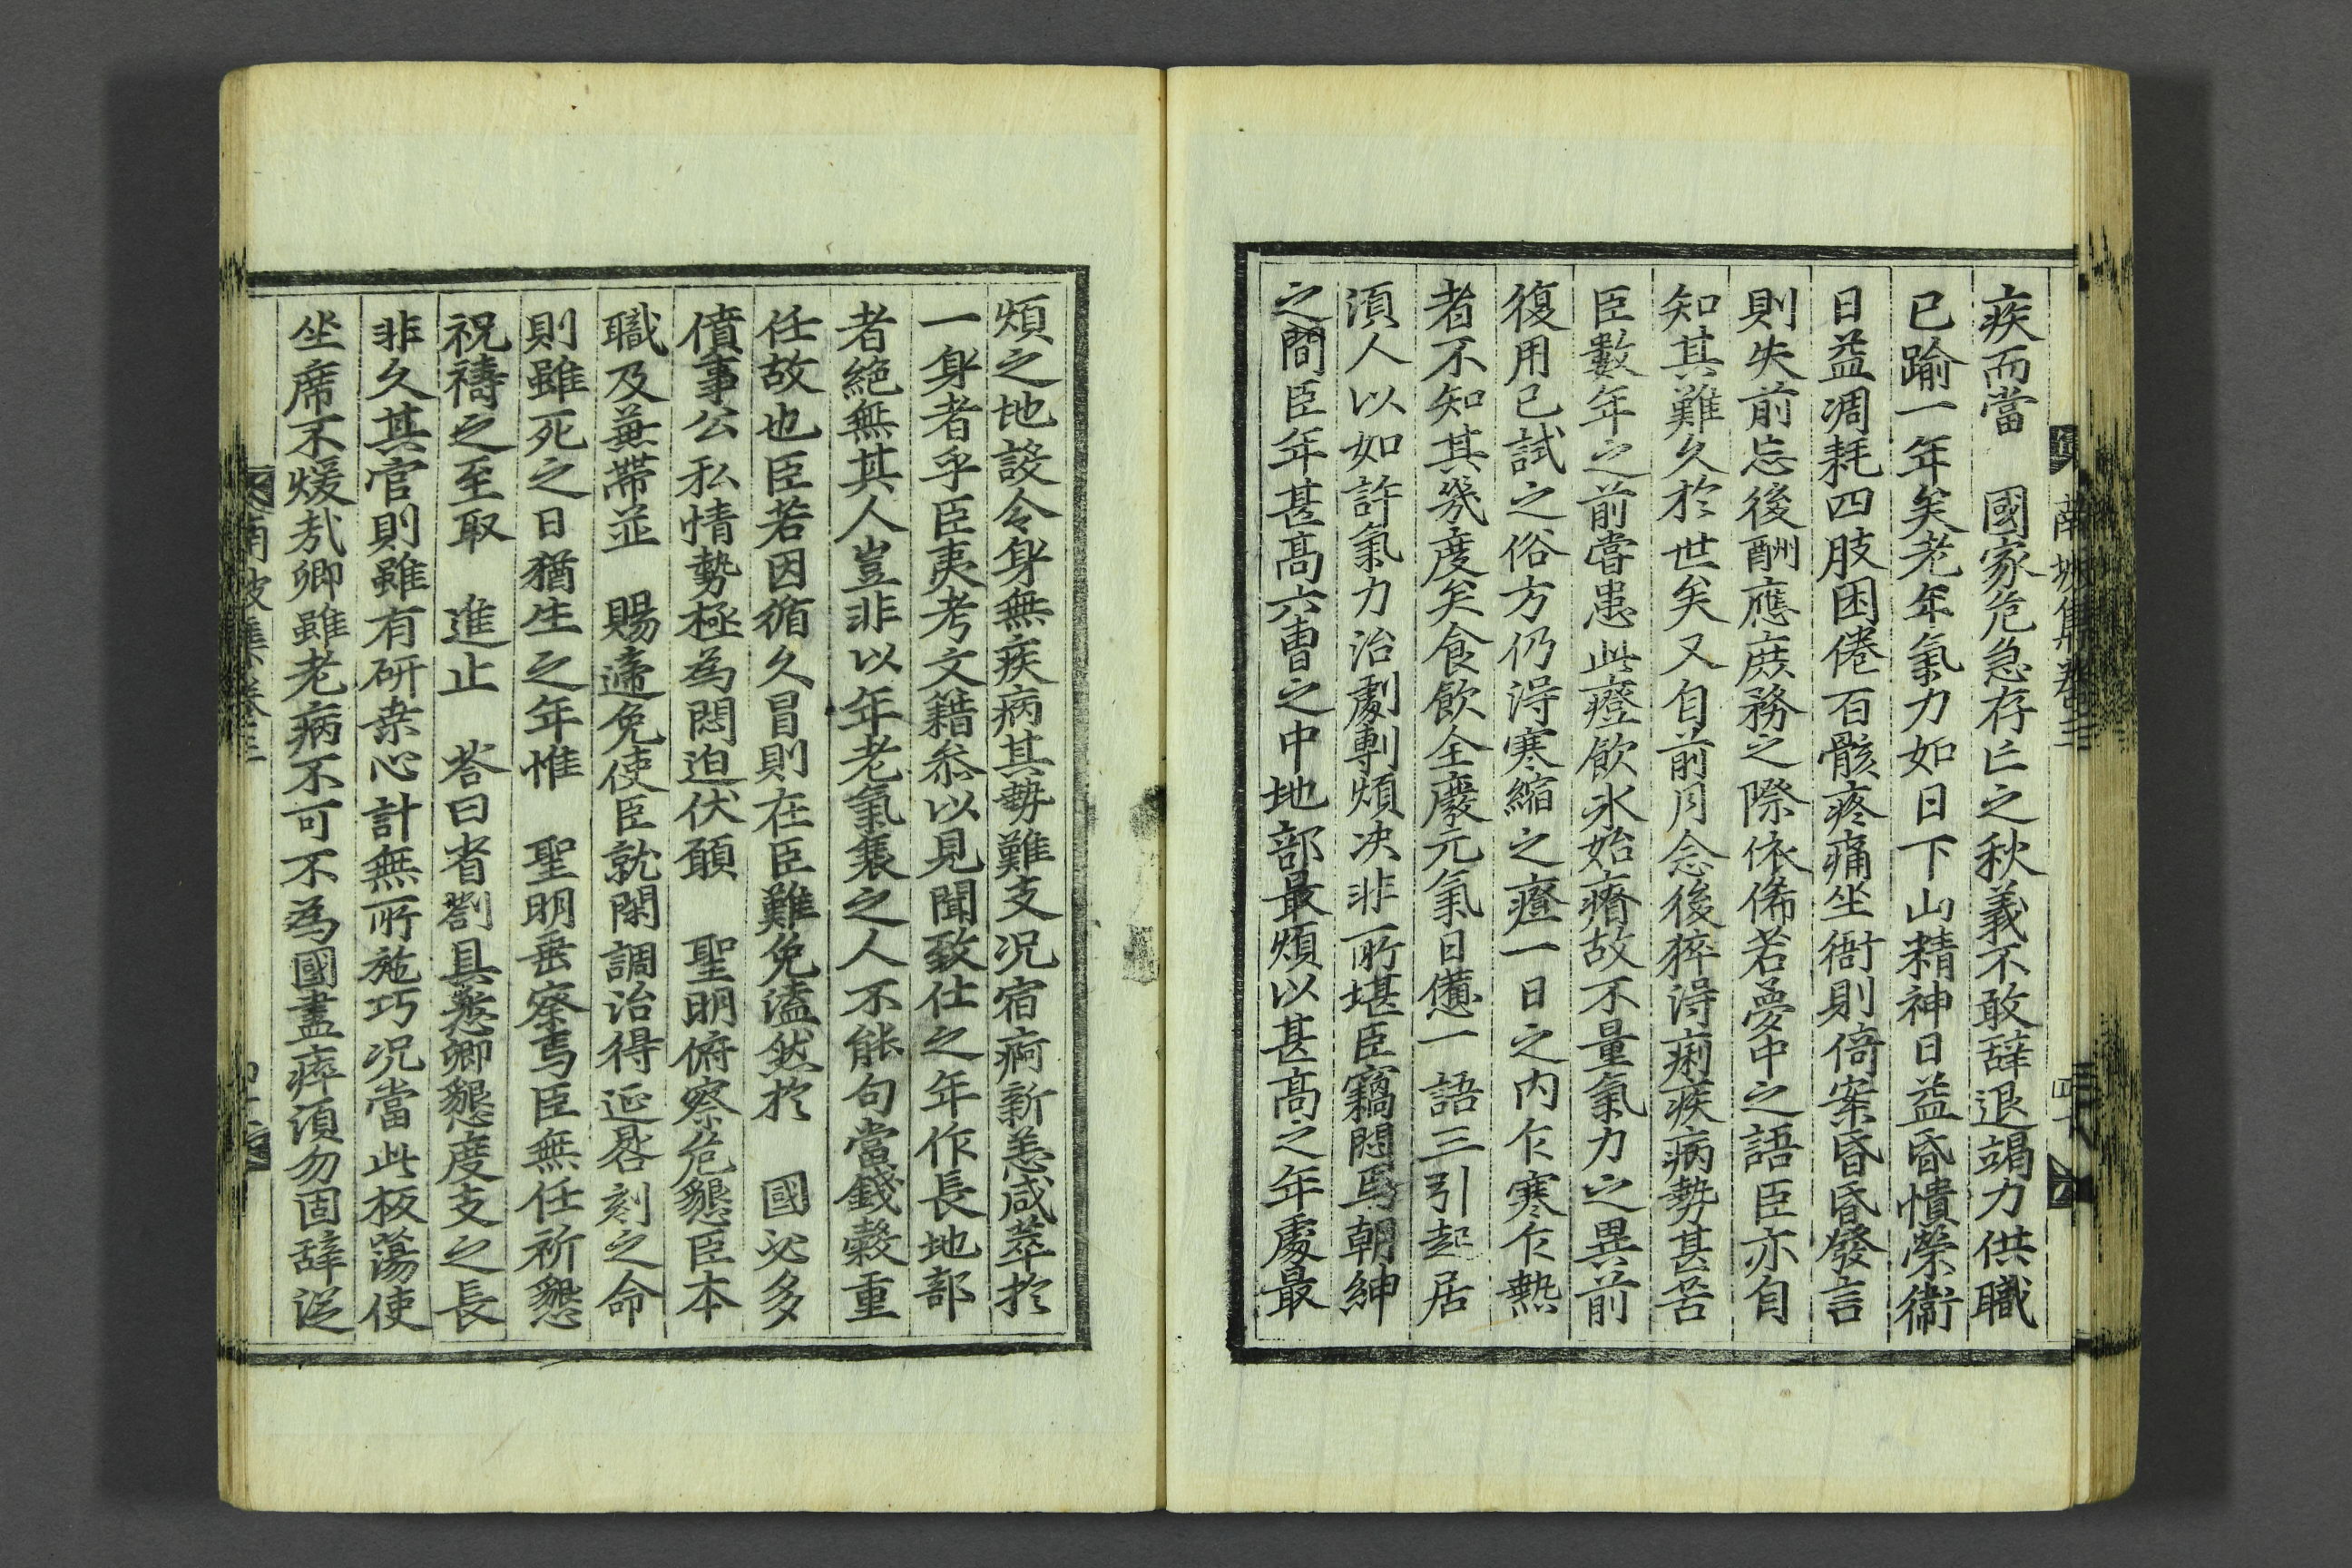 疾而當　國家危急存亡之秋義不敢辭退竭力供職
已踰一年矣老年氣力如日下山精神日益昏憒榮衛
日益凋耗四肢困倦百骸疼痛坐衙則倚案昏昏發言
則失前忘後酬應庶務之際依俙若夢中之語臣亦自
知其難久於世矣又自前月念後猝得痢疾病勢甚苦
臣數年之前嘗患此癥飮氷始瘳故不量氣力之異前
復用已試之俗方仍得寒縮之癥一日之內乍寒乍熱
者不知其幾度矣食飮全廢元氣日憊一語三引起居
湏人以如許氣力治劇剸煩决非所堪臣竊悶焉朝紳
之間臣年甚高六曹之中地部最煩以甚高之年處最
煩之地設令身無疾病其勢難支况宿痾新恙咸萃於
一身者乎臣夷考文籍叅以見聞致仕之年作長地部
者絶無其人豈非以年老氣衰之人不能句當錢穀重
任故也臣若因循久冒則在臣難免溘然於　國必多
僨事公私情勢極爲悶迫伏願　聖明俯察危懇臣本
職及兼帶並　賜遞免使臣就閑調治得延晷刻之命
則雖死之日猶生之年惟　聖明垂察焉臣無任祈懇
祝禱之至取　進止　答曰省劄具悉卿懇度支之長
非久其官則雖有硏桒心計無所施巧况當此板蕩使
坐席不煖㢤卿雖老病不可不爲國盡瘁湏勿固辭逆
南坡集卷三